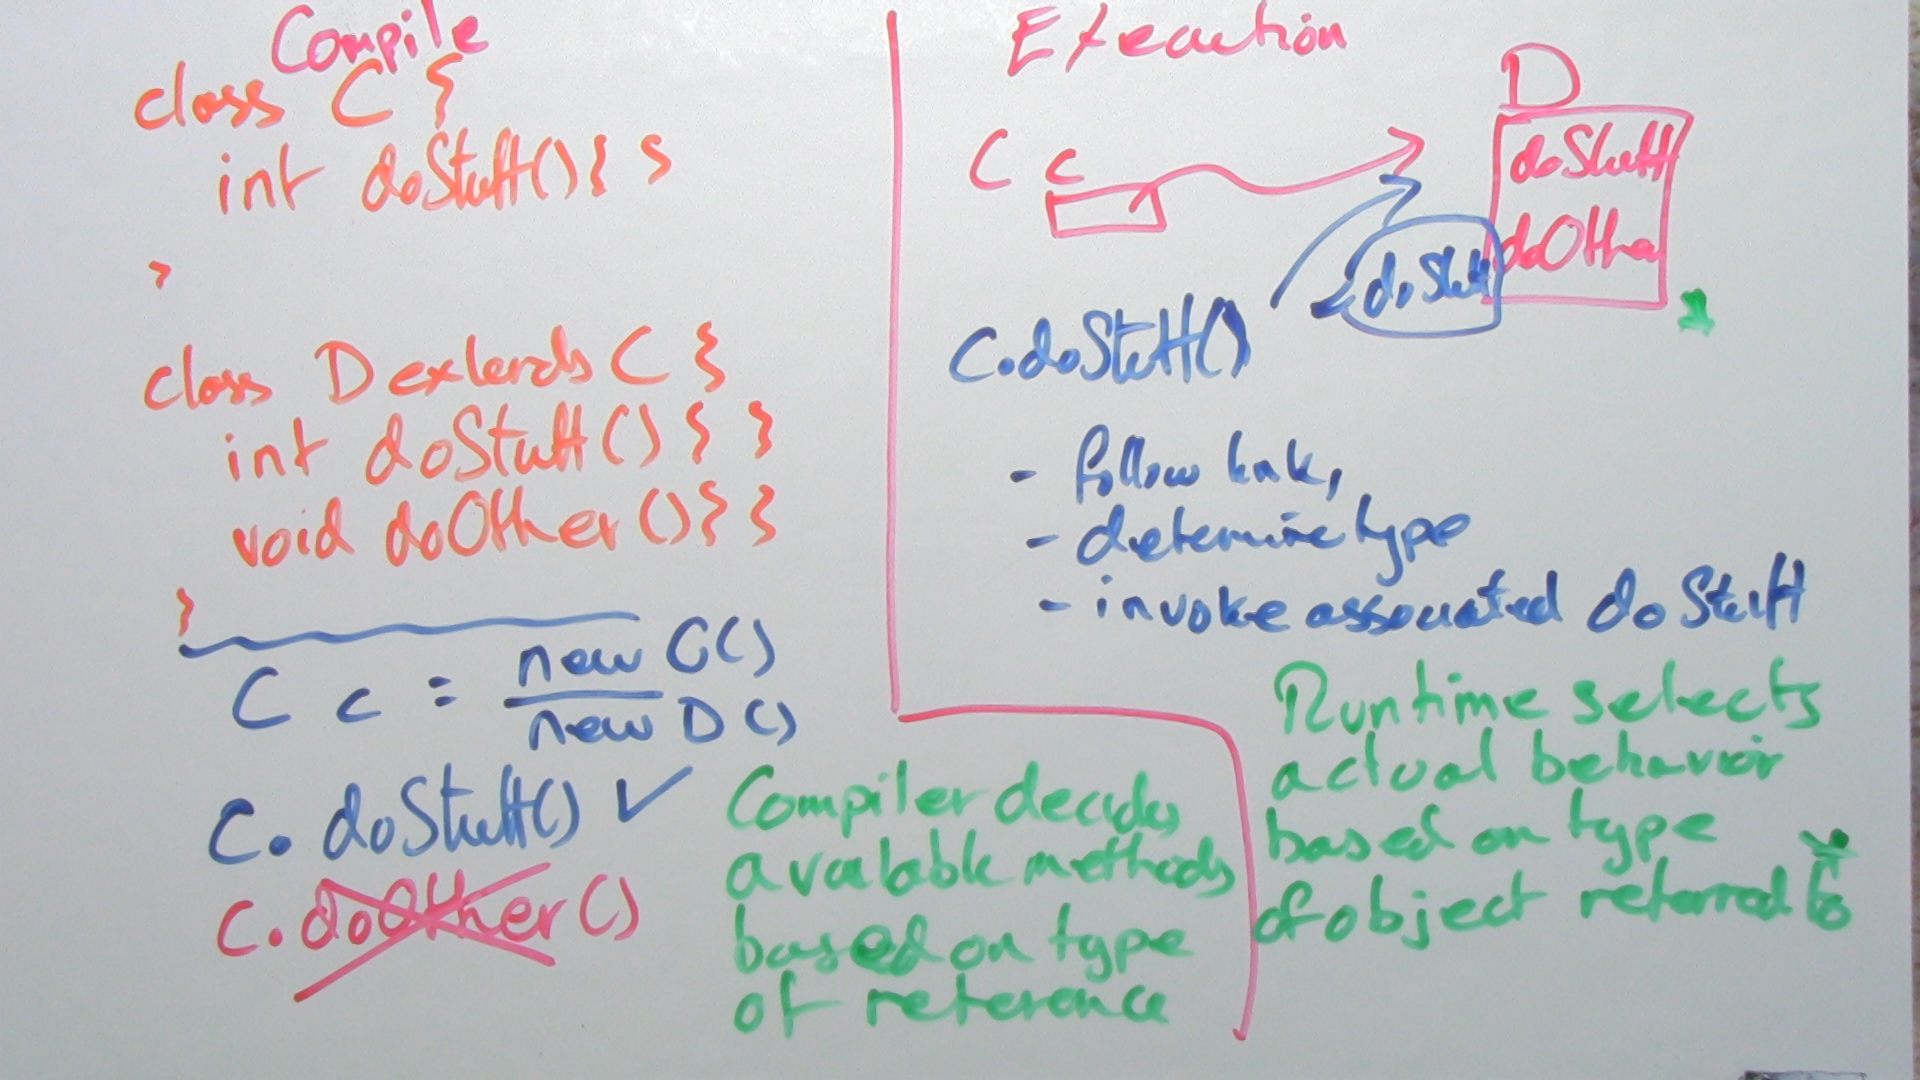 Compile
class C {
int doStuff() { }
}
class D extends C {
int doStuff() { }
void doOther() { }
}
C c = new C()
new D()
c. doStuff() ✓
c. doOther()
Compiler decides
available methods
based on type
of reference
Execution
D
C c
doStuff
doOther
doStuff
C.doStuff()
- follow link,
- determine type
- invoke associated doStuff
Runtime selects
actual behavior
based on type
of object referred to